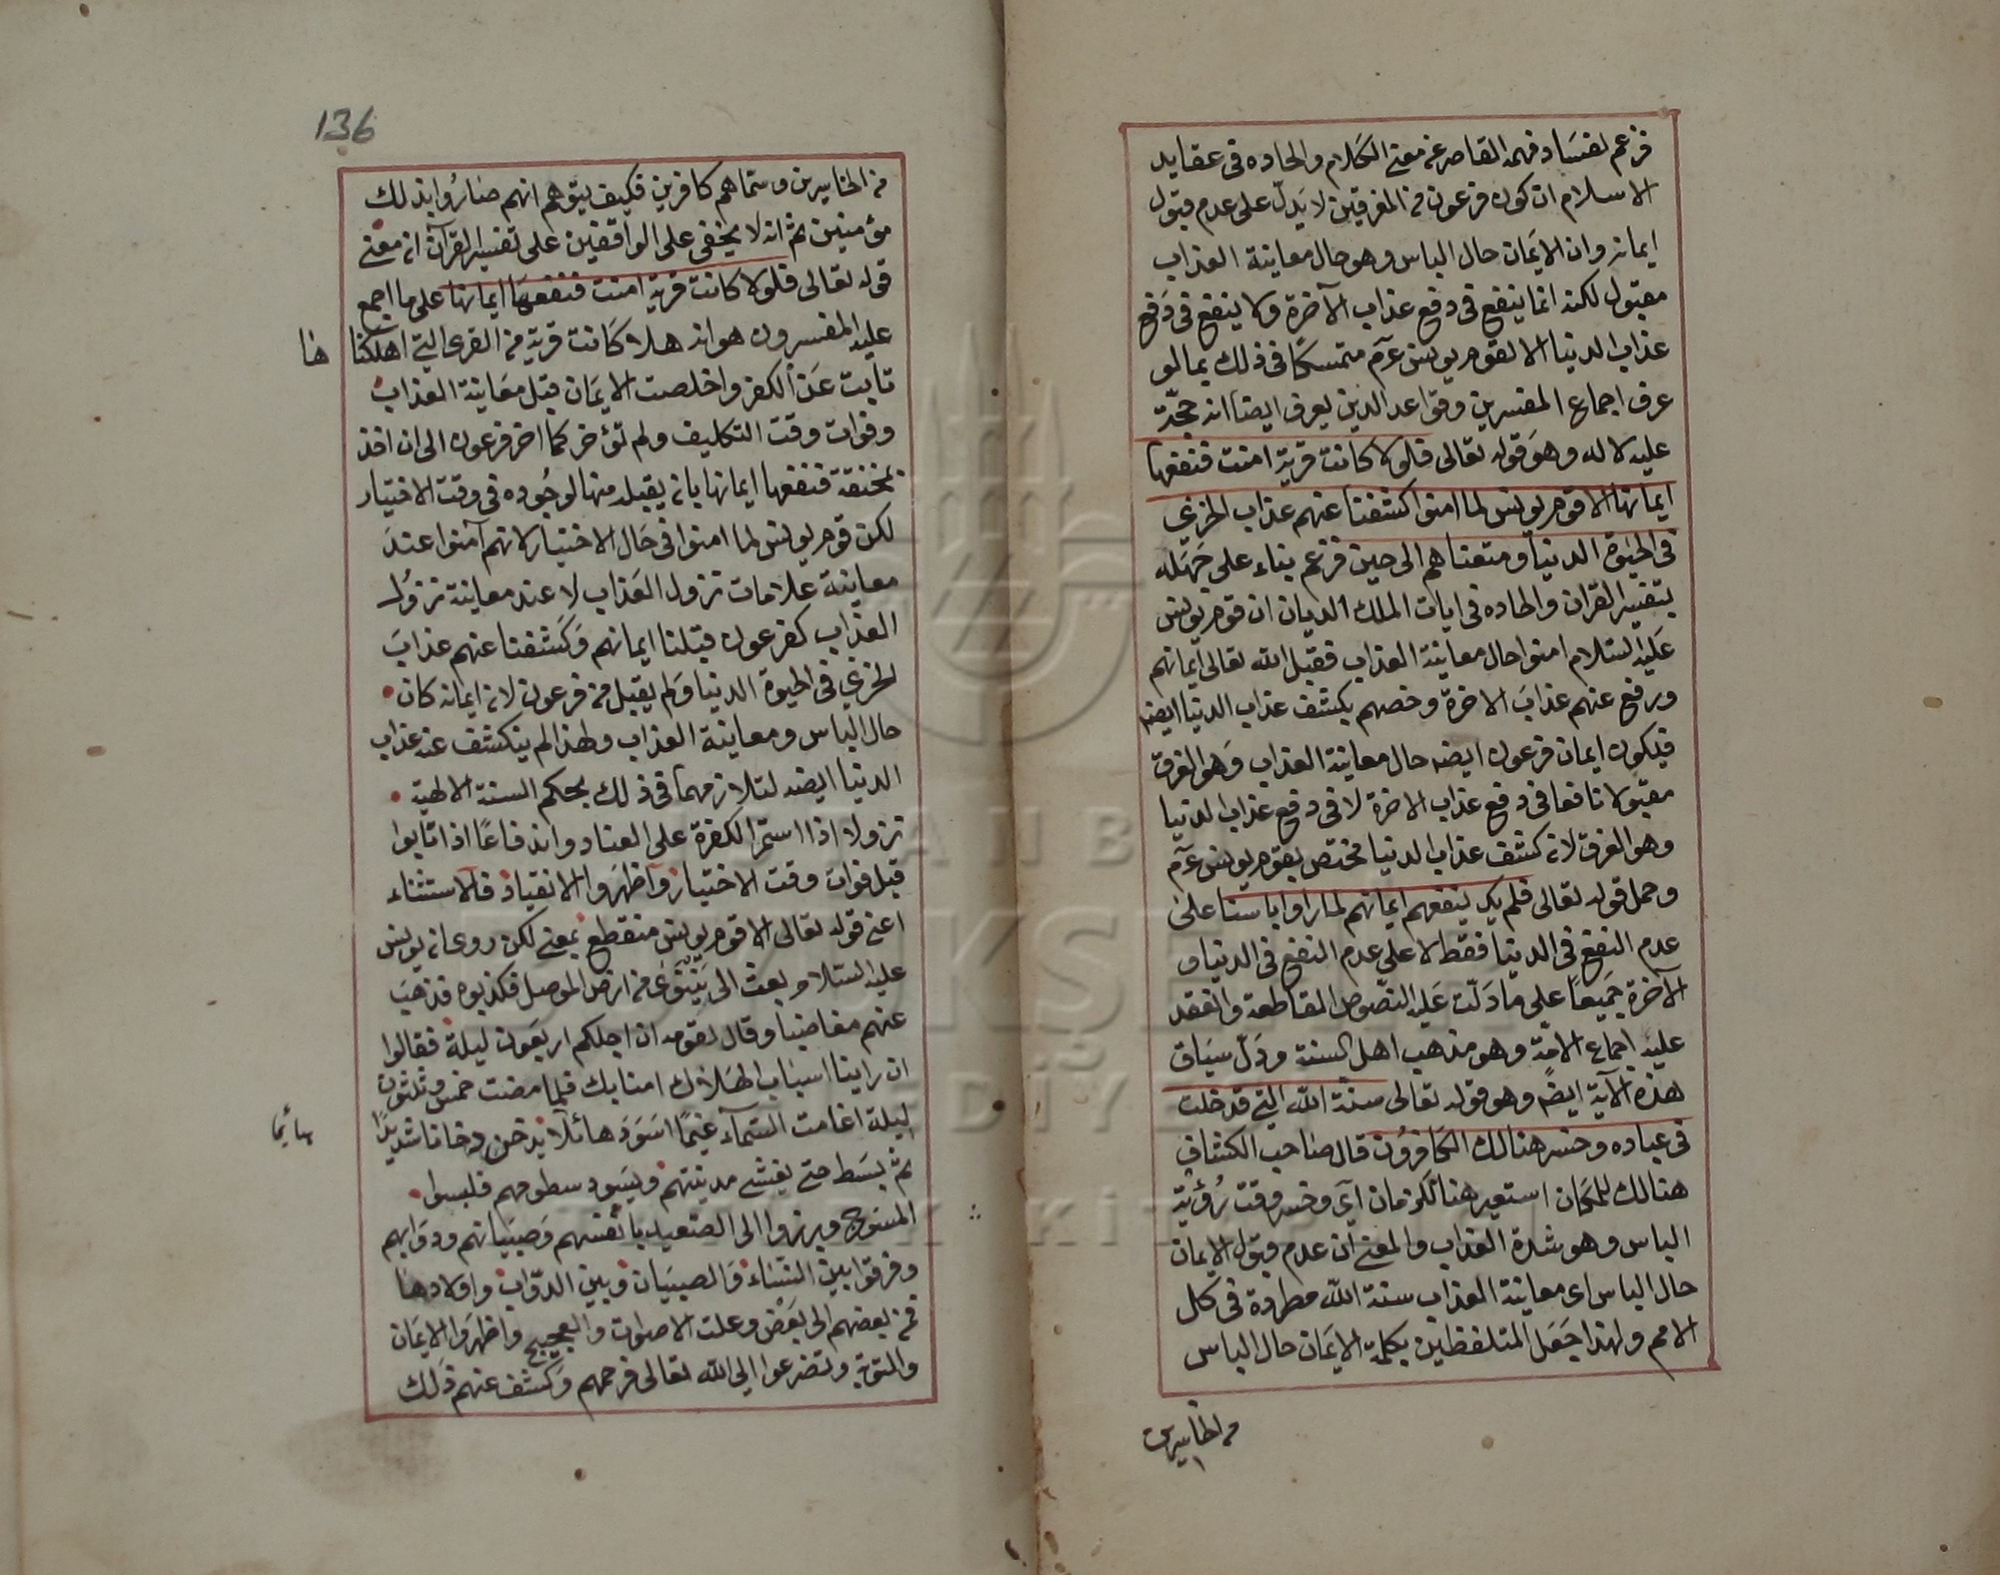 فزعم لفساد فهمه القاصر عن معنى الكلام والحاده فى عقايد
الاسلام ان كون فرعون من المغرقين لا يدل على عدم قبول
ايمانه وان الايمان حال الباس وهو حال معاينة العذاب
مقبول لكنه انما ينفع فى دفع عذاب الآخرة ولا ينفع فى دفع
عذاب الدنيا الا لقوم يونس عم متمسكا فى ذلك بما لو
عرف اجماع المفسرين وقواعد الدين يعرف ايضا انه حجة
عليه لا له وهو قوله تعالى فلولا كانت قرية امنت فنفعها
ايمانها الا قوم يونس لما امنوا كشفنا عنهم عذاب الخزي
فى الحيوة الدنيا ومتعناهم الى حين فزعم بناء على جهله
بتفسير القران والحاده فى ايات الملك الديان ان قوم يونس
عليه السلام امنوا حال معاينة العذاب فقبل الله تعالى ايمانهم
ورفع عنهم عذاب الاخرة وخصهم بكشف عذاب الدنيا ايضه
فيكون ايمان فرعون ايضه حال معاينة العذاب وهو الغرق
مقبولا نافعا فى دفع عذاب الاخرة لا فى دفع عذاب الدنيا
وهو الغرق لان كشف عذاب الدنيا مختص بقوم يونس عم
وحمل قوله تعالى فلم يك ينفعهم ايمانهم لما راوا باسنا على
عدم النفع فى الدنيا فقط لا على عدم النفع فى الدنيا و
الآخرة جميعا على ما دلت عليه النصوص القاطعة وانعقد
عليه اجماع الامة وهو مذهب اهل السنة ودل سياق
هذه الآية ايضً وهو قوله تعالى سنة الله التي قد خلت
فى عباده وخسر هنالك الكافرون قال صاحب الكشاف
هنالك للمكان استعير هنا للزمان اي وخسر وقت رؤية
الباس وهو شدة العذاب والمعنى ان عدم قبول الايمان
حال الباس اى معاينة العذاب سنة الله مطردة فى كل
الامم ولهذا جعل المتلفظين بكلمة الايمان حال الباس
من الخاسرين
136
من الخاسرين وسماهم كافرين فكيف يتوهم انهم صاروا بذلك
مؤمنين ثم انه لا يخفى على الواقفين على تفسير القرآن ان معنى
قوله تعالى فلولا كانت قرية امنت فنفعها ايمانها على ما اجمع
عليه المفسرون هو انه هلا كانت قرية من القرى التي اهلكنا
ها
تابت عن الكفر واخلصت الايمان قبل معاينة العذاب
وفوات وقت التكليف ولم تؤخر كما اخر فرعون الى ان اخذ
بمخنقه فنفعها ايمانها بان يقبله منها لوجوده فى وقت الاختيار
لكن قوم يونس لما امنوا فى حال الاختيار لانهم آمنوا عند
معاينة علامات نزول العذاب لا عند معاينة نزول
العذاب كفرعون قبلنا ايمانهم وكشفنا عنهم عذاب
الخزي فى الحيوة الدنيا ولم يقبل من فرعون لان ايمانه كان
حال الباس ومعاينة العذاب ولهذا لم ينكشف عنه عذاب
الدنيا ايضه لتلازمهما فى ذلك بحكم السنة الالهية
نزولا اذا استمر الكفرة على العناد واندفاعا اذا تابوا
قبل فوات وقت الاختيار واظهروا الانقياد فالاستثناء
اعنى قوله تعالى الا قوم يونس منقطع بمعنى لكن روى ان يونس
عليه السلام بعث الى نينوى من ارض الموصل فكذبوه فذهب
عنهم مغاضبا وقال لقومه ان اجلكم اربعون ليلة فقالوا
ان راينا اسباب الهلاك امنا بك فلما مضت خمس وثلثون
ليلة اغامت السماء غيما اسود هائلا يدخن دخانا شديدا
ثم بسط حتى يغشى مدينتهم ويسود سطوحهم فلبسوا
المسوح وبرزوا الى الصعيد بانفسهم وصبيانهم ودوابهم
وفرقوا بين النساء والصبيان وبين الدواب واولادها
فحن بعضهم الى بعض وعلت الاصوات والعجيج واظهروا الايمان
والتوبة وتضرعوا الى الله تعالى فرحمهم وكشف عنهم ذلك